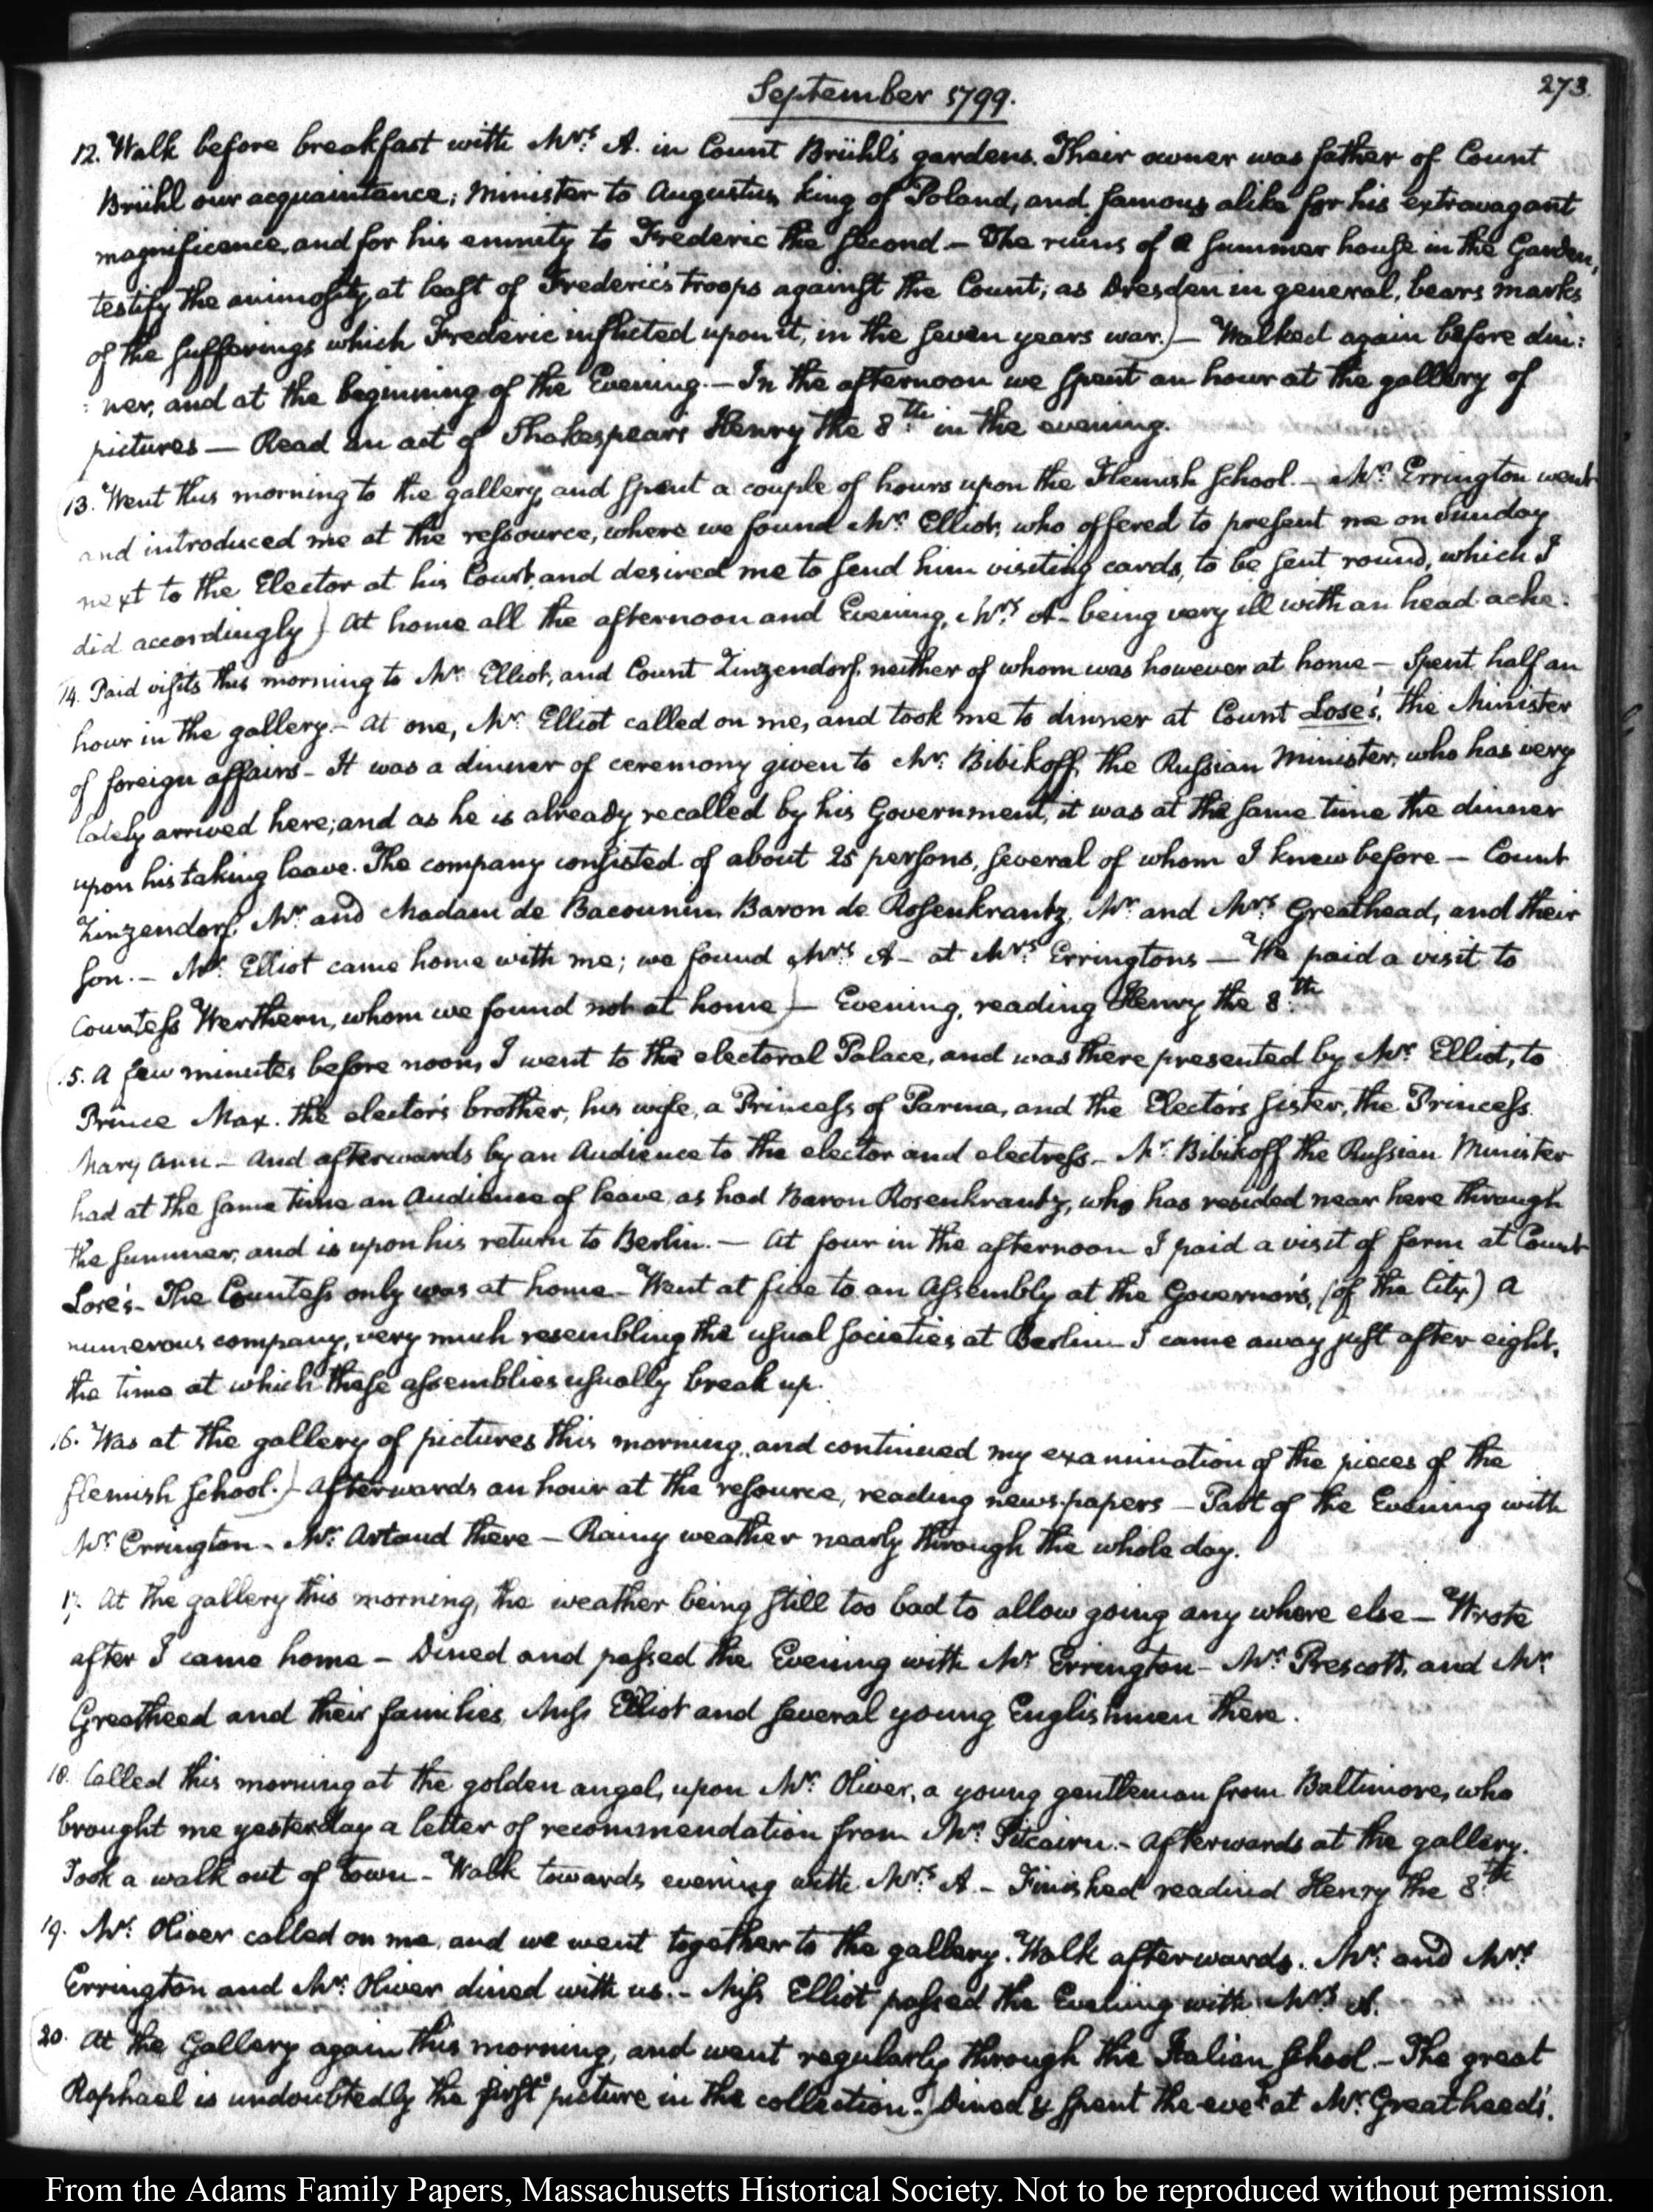 273.
September 1799.
12. Walk before breakfast with Mrs. A. in Count Brühl's gardens. Their owner was father of Count
Brühl our acquaintance; Minister to Augustus, king of Poland, and famous alike for his extravagant
magnificence, and for his enmity to Frederic the Second — The ruins of a summer house in the Garden,
testify the animosity at least of Frederic's troops against the Count; as Dresden in general, bears marks
of the sufferings which Frederic inflicted upon it, in the seven years war.) — Walked again before din:
: ner, and at the beginning of the Evening. — In the afternoon we spent an hour at the gallery of
pictures — Read an act of Shakespears Henry the 8th. in the evening.
13. Went this morning to the gallery, and spent a couple of hours upon the Flemish School. — Mr. Errington went
and introduced me at the ressource, where we found Mr. Elliot, who offered to present me on Sunday
next to the Elector at his Court, and desired me to send him visiting cards, to be sent round, which I
did accordingly) At home all the afternoon and Evening, Mrs. A — being very ill with an head-ache.
14. Paid visits this morning to Mr. Elliot, and Count Zinzendorf, neither of whom was however at home — Spent half an
hour in the gallery. — At one, Mr. Elliot called on me, and took me to dinner at Count Lose's, the Minister
of foreign affairs — It was a dinner of ceremony given to Mr. Bibikoff, the Russian Minister, who has very
lately arrived here; and as he is already recalled by his Government, it was at the same time the dinner
upon his taking leave. The company consisted of about 25 persons, several of whom I knew before — Count
Zinzendorf, Mr. and Madam de Bacounin, Baron de Rosenkrantz, Mr. and Mrs. Greathead, and their
son. — Mr. Elliot came home with me; we found Mrs. A — at Mrs. Erringtons — We paid a visit to
Countess Werthern, whom we found not at home) — Evening, reading Henry the 8th.
15. A few minutes before noon, I went to the electoral Palace, and was there presented by Mr. Elliot, to
Prince Max. the elector's brother, his wife, a Princess of Parma, and the Elector's sister, the Princess
Mary Ann — And afterwards by an Audience to the elector and electress — Mr. Bibikoff the Russian Minister
had at the same time an Audience of leave, as had Baron Rosenkrantz, who has resided near here through
the summer, and is upon his return to Berlin. — At four in the afternoon I paid a visit of form at Count
Lose's — The Countess only was at home — Went at five to an Assembly at the Governor's, (of the City.) A
numerous company, very much resembling the usual societies at Berlin — I came away just after eight,
the time at which these assemblies usually break up.
16. Was at the gallery of pictures this morning, and continued my examination of the pieces of the
flemish school.) — Afterwards an hour at the resource, reading news-papers — Part of the Evening with
Mr. Errington — Mr. Artaud there — Rainy weather nearly through the whole day.
17. At the gallery this morning, the weather being still too bad to allow going any where else — Wrote
after I came home — Dined and passed the Evening with Mr. Errington — Mr. Prescott, and Mr.
Greatheed and their families, Miss Elliot and several young Englishmen there.
18. Called this morning at the golden angel, upon Mr. Oliver, a young gentleman from Baltimore, who
brought me yesterday a letter of recommendation from Mr. Pitcairn. — Afterwards at the gallery.
Took a walk out of town — Walk towards evening with Mrs. A — Finished readind Henry the 8th.
19. Mr. Oliver called on me, and we went together to the gallery. Walk afterwards. Mr. and Mrs.
Errington and Mr. Oliver dined with us. — Miss Elliot passed the Evening with Mrs. A.
20. At the Gallery again this morning, and went regularly through the Italian School — The great
Raphael is undoubtedly the first picture in the collection.) Dined & spent the eveg. at Mr. Greatheed's.
From the Adams Family Papers, Massachusetts Historical Society. Not to be reproduced without permission.